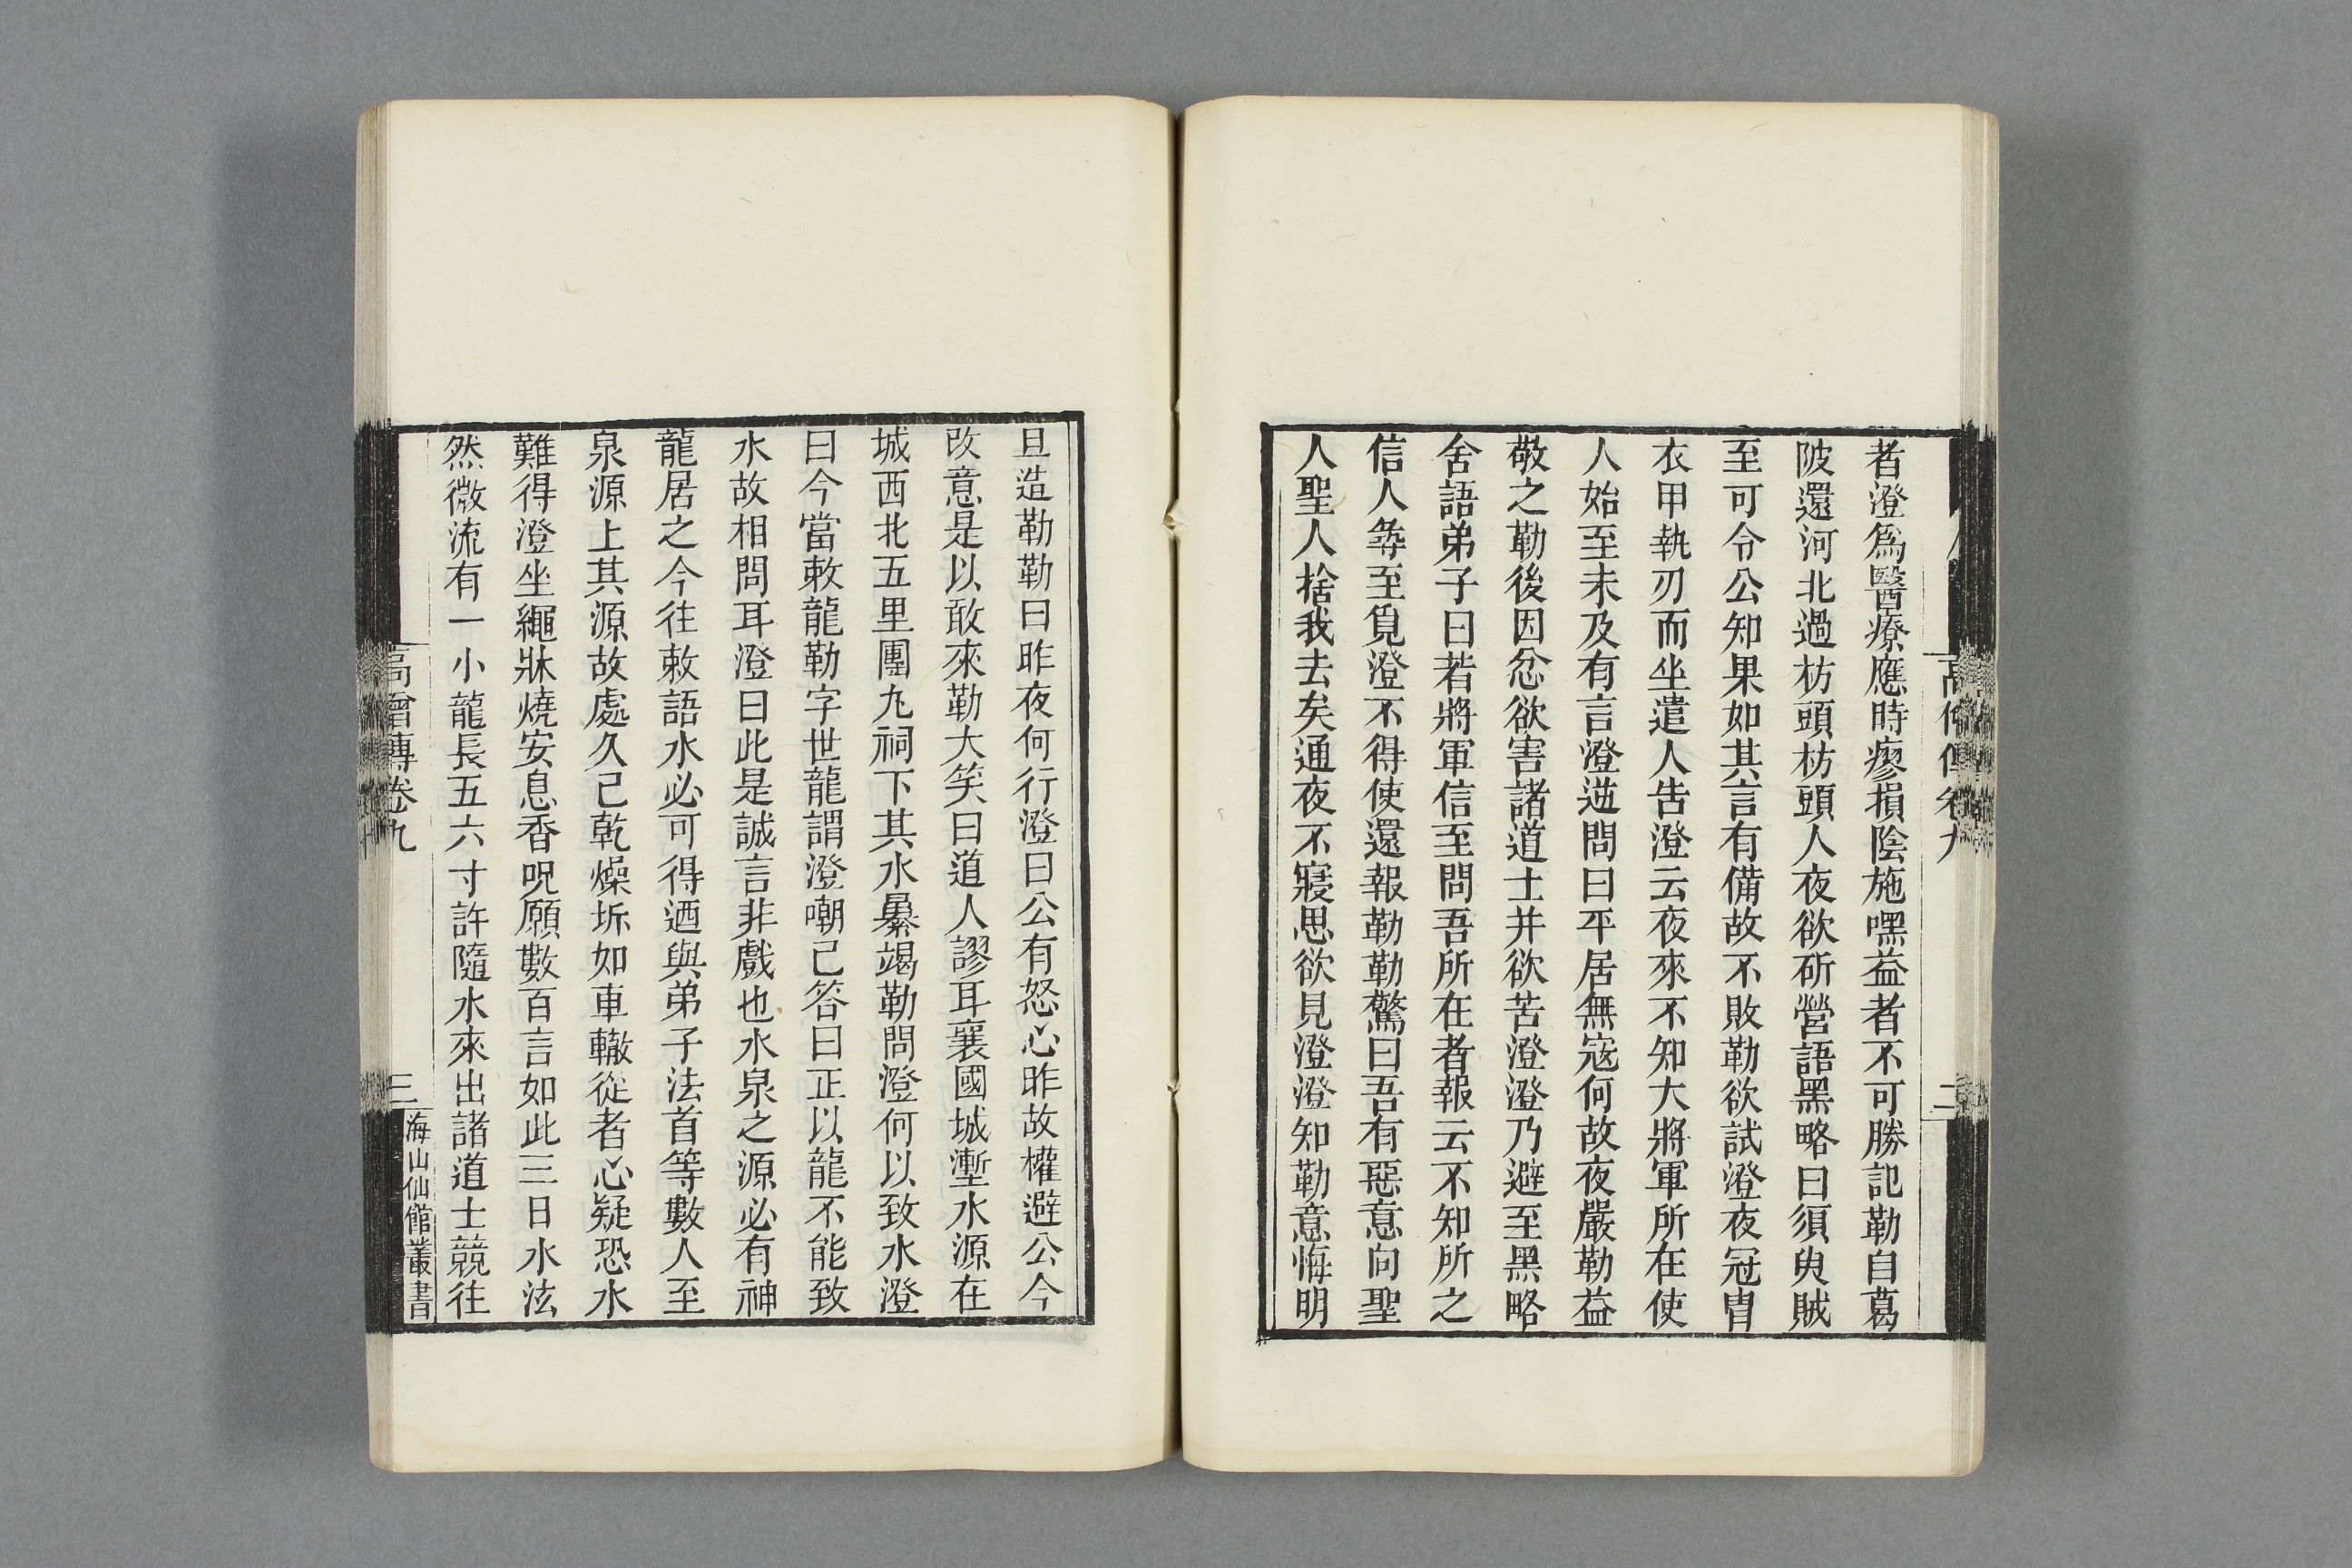 者澄爲醫療應時瘳損陰施嘿益者不可勝記勒自葛
陂還河北過枋頭枋頭人夜欲斫營語黑略曰須臾賊
至可令公知果如其言有備故不敗勒欲試澄夜冠冑
衣甲執刃而坐遣人告澄云夜來不知大將軍所在使
人始至未及有言澄逆問曰平居無寇何故夜嚴勒益
敬之勒後因忿欲害諸道士并欲苦澄澄乃避至黑略
舍語弟子曰若將軍信至問吾所在者報云不知所之
信人尋至覓澄不得使還報勒勒驚曰吾有惡意向聖
人聖人捨我去矣通夜不寢思欲見澄澄知勒意悔明
高僧傳卷九
二
旦造勒勒曰昨夜何行澄曰公有怒心昨故權避公今
改意是以敢來勒大笑曰道人謬耳襄國城塹水源在
城西北五里團丸祠下其水暴竭勒問澄何以致水澄
曰今當敕龍勒字世龍謂澄嘲己答曰正以龍不能致
水故相問耳澄曰此是誠言非戲也水泉之源必有神
龍居之今往敕語水必可得迺與弟子法首等數人至
泉源上其源故處久已乾燥坼如車轍從者心疑恐水
難得澄坐繩牀燒安息香呪願數百言如此三日水泫
然微流有一小龍長五六寸許隨水來出諸道士競往
高僧傳卷九
三
海山仙館叢書